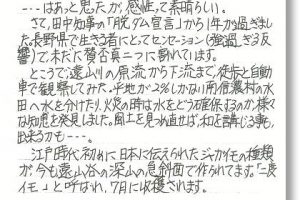 ---はあったが、感性って素晴らしい。
さて、田中知事の「脱ダム宣言」から1年が過ぎました。
長野県で生きる者にとってセンセーション(強過ぎる反
響)で、未だに賛否真二つに割れています。
ところで、遠山川の原流から下流まで、徒歩と自動
車で観察してみた。平地が2%しかない南信濃村の水
田へ水を分けたり、火災の時は水をどう確保するのか、様々
な知恵を発見しました。風土を見つめ直せば、和を講じる事も
出来るかも---。
江戸時代初めに日本に伝えられたジャガイモの種類
が今も遠山谷の深山の急斜面で作られてます。「二度
イモ」と呼ばれ、7月に収穫されます。